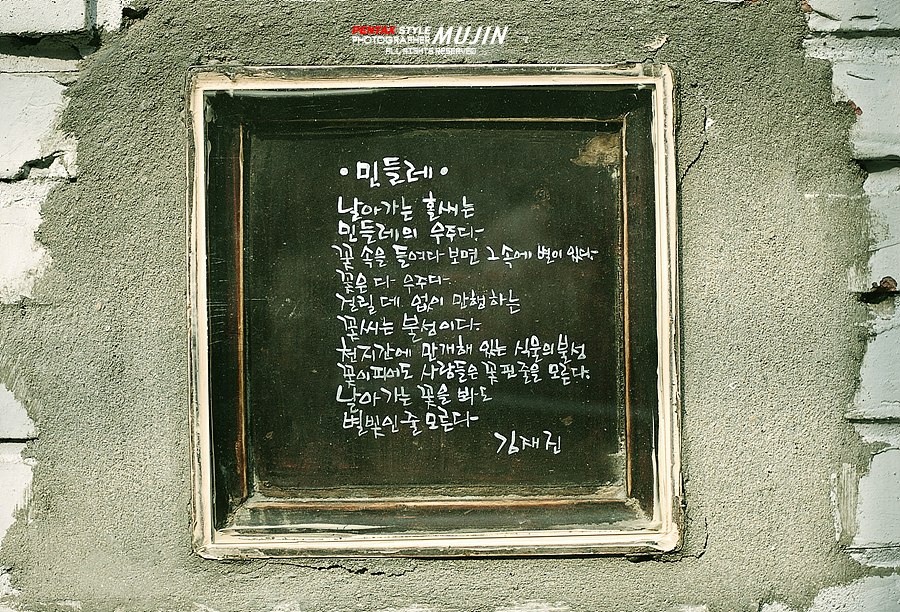 PENTAX STYLE
PHOTOGRAPHER MUJIN
ALL RIGHTS RESERVED
·민들레·
날아가는 홀씨는
민들레의 우주다.
꽃 속을 들여다 보면 그 속에 별이 있다.
꽃은 다 우주다.
걸릴 데 없이 만행하는
꽃씨는 불성이다.
천지간에 만개해 있는 식물의 불성
꽃이 피어도 사람들은 꽃 핀 줄을 모른다.
날아가는 꽃을 봐도
별빛인 줄 모른다
김재진